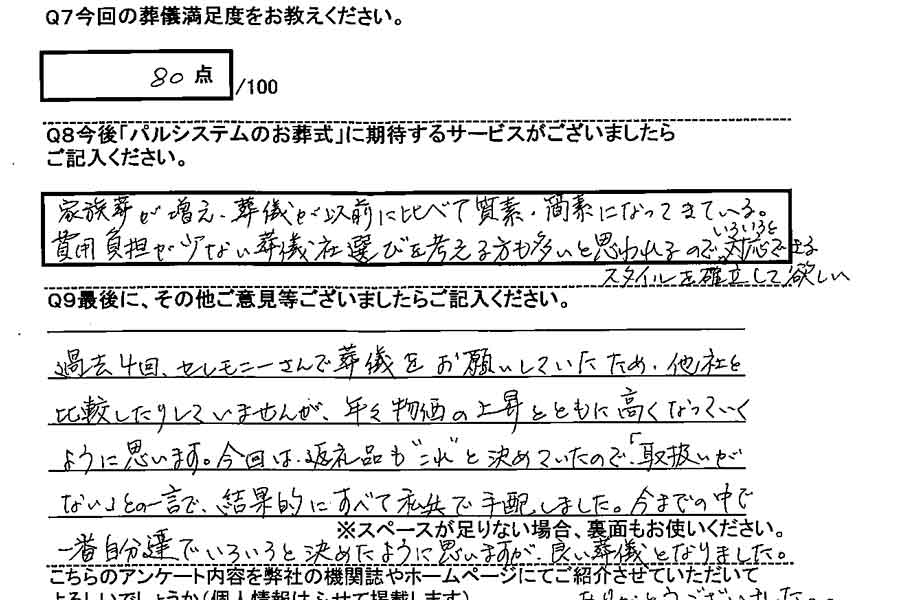 Q7今回の葬儀満足度をお教えください。
80 点
/100
Q8今後「パルシステムのお葬式」に期待するサービスがございましたら
ご記入ください。
家族葬が増え、葬儀も以前に比べて質素・簡素になってきている。
費用負担が少ない葬儀社選びを考える方も多いと思われるので、いろいろと対応できる
スタイルを確立して欲しい
Q9最後に、その他ご意見等ございましたらご記入ください。
過去4回、セレモニーさんで葬儀をお願いしていたため、他社と
比較したりしていませんが、年々物価の上昇とともに高くなっていく
ように思います。今回は、返礼品も"これ"と決めていたので、「取扱いが
ない」との一言で、結果的にすべて私共で手配しました。今までの中で
※スペースが足りない場合、裏面もお使いください。
一番自分達でいろいろと決めたように思いますが、良い葬儀となりました。
こちらのアンケート内容を弊社の機関誌やホームページにてご紹介させていただいて
よろしいでしょうか(個人情報はふせて掲載します)
ありがとうございました。